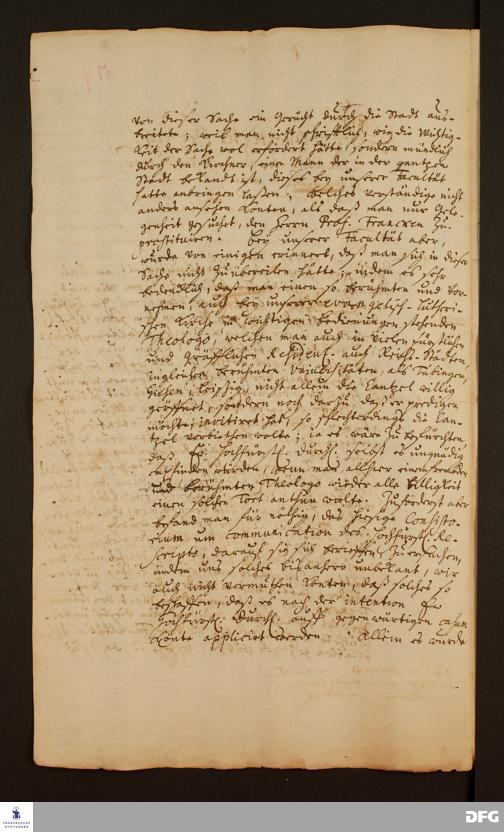 von dießer Sache ein Gerücht durch die Stadt aus-
breitete; weil man nicht schrifftlich, wie die Wichtig-
keit der Sache wol erfordert hätte, sondern mündlich
durch den Kirchner, einen Mann der in der gantzen
Stadt bekandt ist, dieses bey unserer Facultät
hatte anbringen laßen; welches verständige nicht
anders ansehen konten, als daß man nur Gele-
genheit gesucht, den Herrn Prof. Francken zu
prostituiren. Bey unserer Facultät aber,
wurde von einigen erinnert, daß man sich in dießer
Sache nicht zu übereilen hätte; indem es sehr
bedencklich, daß man einen so berühmten und vor-
nehmen, auch bey unserer evangelisch-Lutheri-
schen Kirche in wichtigen bedienungen stehenden
Theologo, welchen man auch in vielen fürstlichen
und Gräfflichen Residenz- auch Reichs-Städten,
ingleichen berühmten Universitäten, als Tübingen,
Gießen, Leipzig, nicht allein die Cantzel willig
geöffnet, sondern noch darzu, daß er predigen
möchte, invitiret hat, so schlechterdings die Can-
tzel verbiethen wolte; ja es wäre zu befürchten,
daß Ew. Hochfürstl. Durchl. selbst es ungnädig
empfinden würden, wenn man allhier einem fremden
und berühmten Theologo wieder alle Billigkeit
einen solchen Tort anthun wolte. Zuforderst aber
befand man für nöthig, das hiesige Consisto-
rium um communication des Hochfürstl. Re-
scripts, darauf sie sich berieffen, zu ersuchen,
indem uns solches bis anhero unbekant, wir
auch nicht vermuthen konten, daß solches so
beschaffen, daß es nach der intention Ew.
Hochfürstl. Durchl. auff gegenwärtigen casum
könte appliciret werden. Allein es wurde
DFG